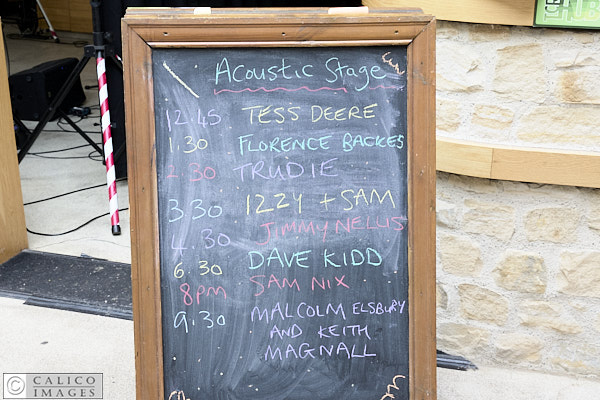 Acoustic Stage
12.45 TESS DEERE
1.30 FLORENCE BACKES
2.30 TRUDIE
3.30 IZZY + SAM
4.30 JIMMY NELUS
6.30 DAVE KIDD
8PM SAM NIX
9.30 MALCOLM ELSBURY
AND KEITH
MAGNALL
© CALICO
IMAGES